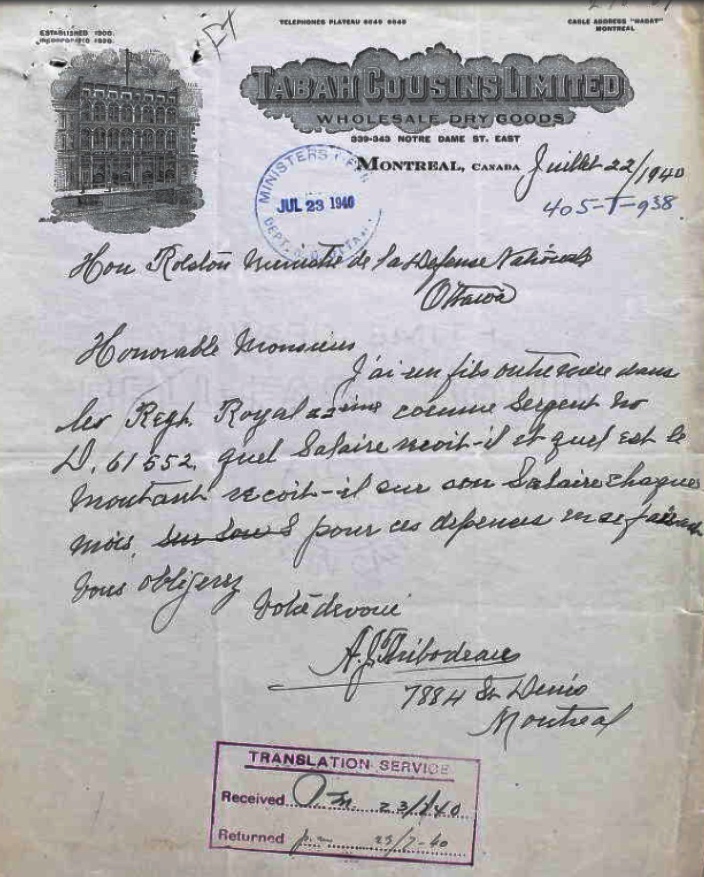 ESTABLISHED 1900.
INCORPORATED 1920.
TELEPHONES PLATEAU
CABLE ADDRESS "HABAT"
MONTREAL
TABAH COUSINS LIMITED
WHOLESALE DRY GOODS
339-343 NOTRE DAME ST. EAST
MONTREAL, CANADA Juillet 22/1940
405-T-938
MINISTERS
JUL 23 1940
DEPT.
Hon Rolston de la Defense National
Ottawa
Honorable Monsieur
J'ai un fils outre mere dans
les Regt. Royal 22 ieme comme Sergent No
D. 61552, quel Salaire recoit-il et quel est le
montant recoit-il sur son Salaire chaque
mois, sur son S pour ces depences en se faisant
vous obligerez
Votre devoué
A.J. Thibodeau
7884 St. Denis
Montreal
TRANSLATION SERVICE
Received 23/7/40
Returned p.m. 23/7-40